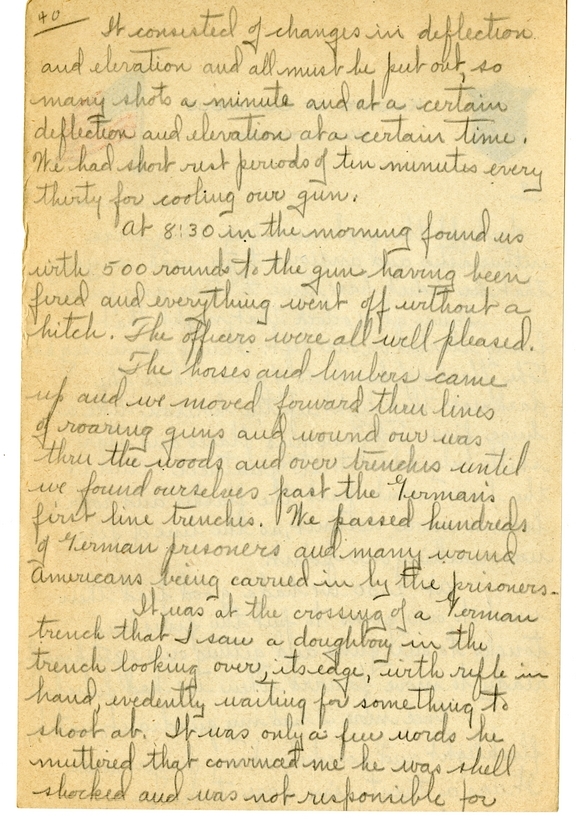 40
It consisted of changes in deflection
and elevation and all must be put out, so
many shots a minute and at a certain
deflection and elevation at a certain time.
We had short rest periods of ten minutes every
thirty for cooling our gun.
At 8:30 in the morning found us
with 500 rounds to the gun having been
fired and everything went off without a
hitch. The officers were all well pleased.
The horses and limbers came
up and we moved forward thru lines
of roaring guns and wound our was
thru the woods and over trenches until
we found ourselves past the German's
first line trenches. We passed hundreds
of German prisoners and many wound
Americans being carried in by the prisoners.
It was at the crossing of a German
trench that I saw a doughboy in the
trench looking over, its edge, with rifle in
hand, evedently waiting for something to
shoot at. It was only a few words he
muttered that convinced me he was shell
shocked and was not responsible for